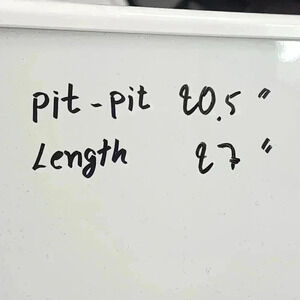 pit-pit 20.5"
Length 27"